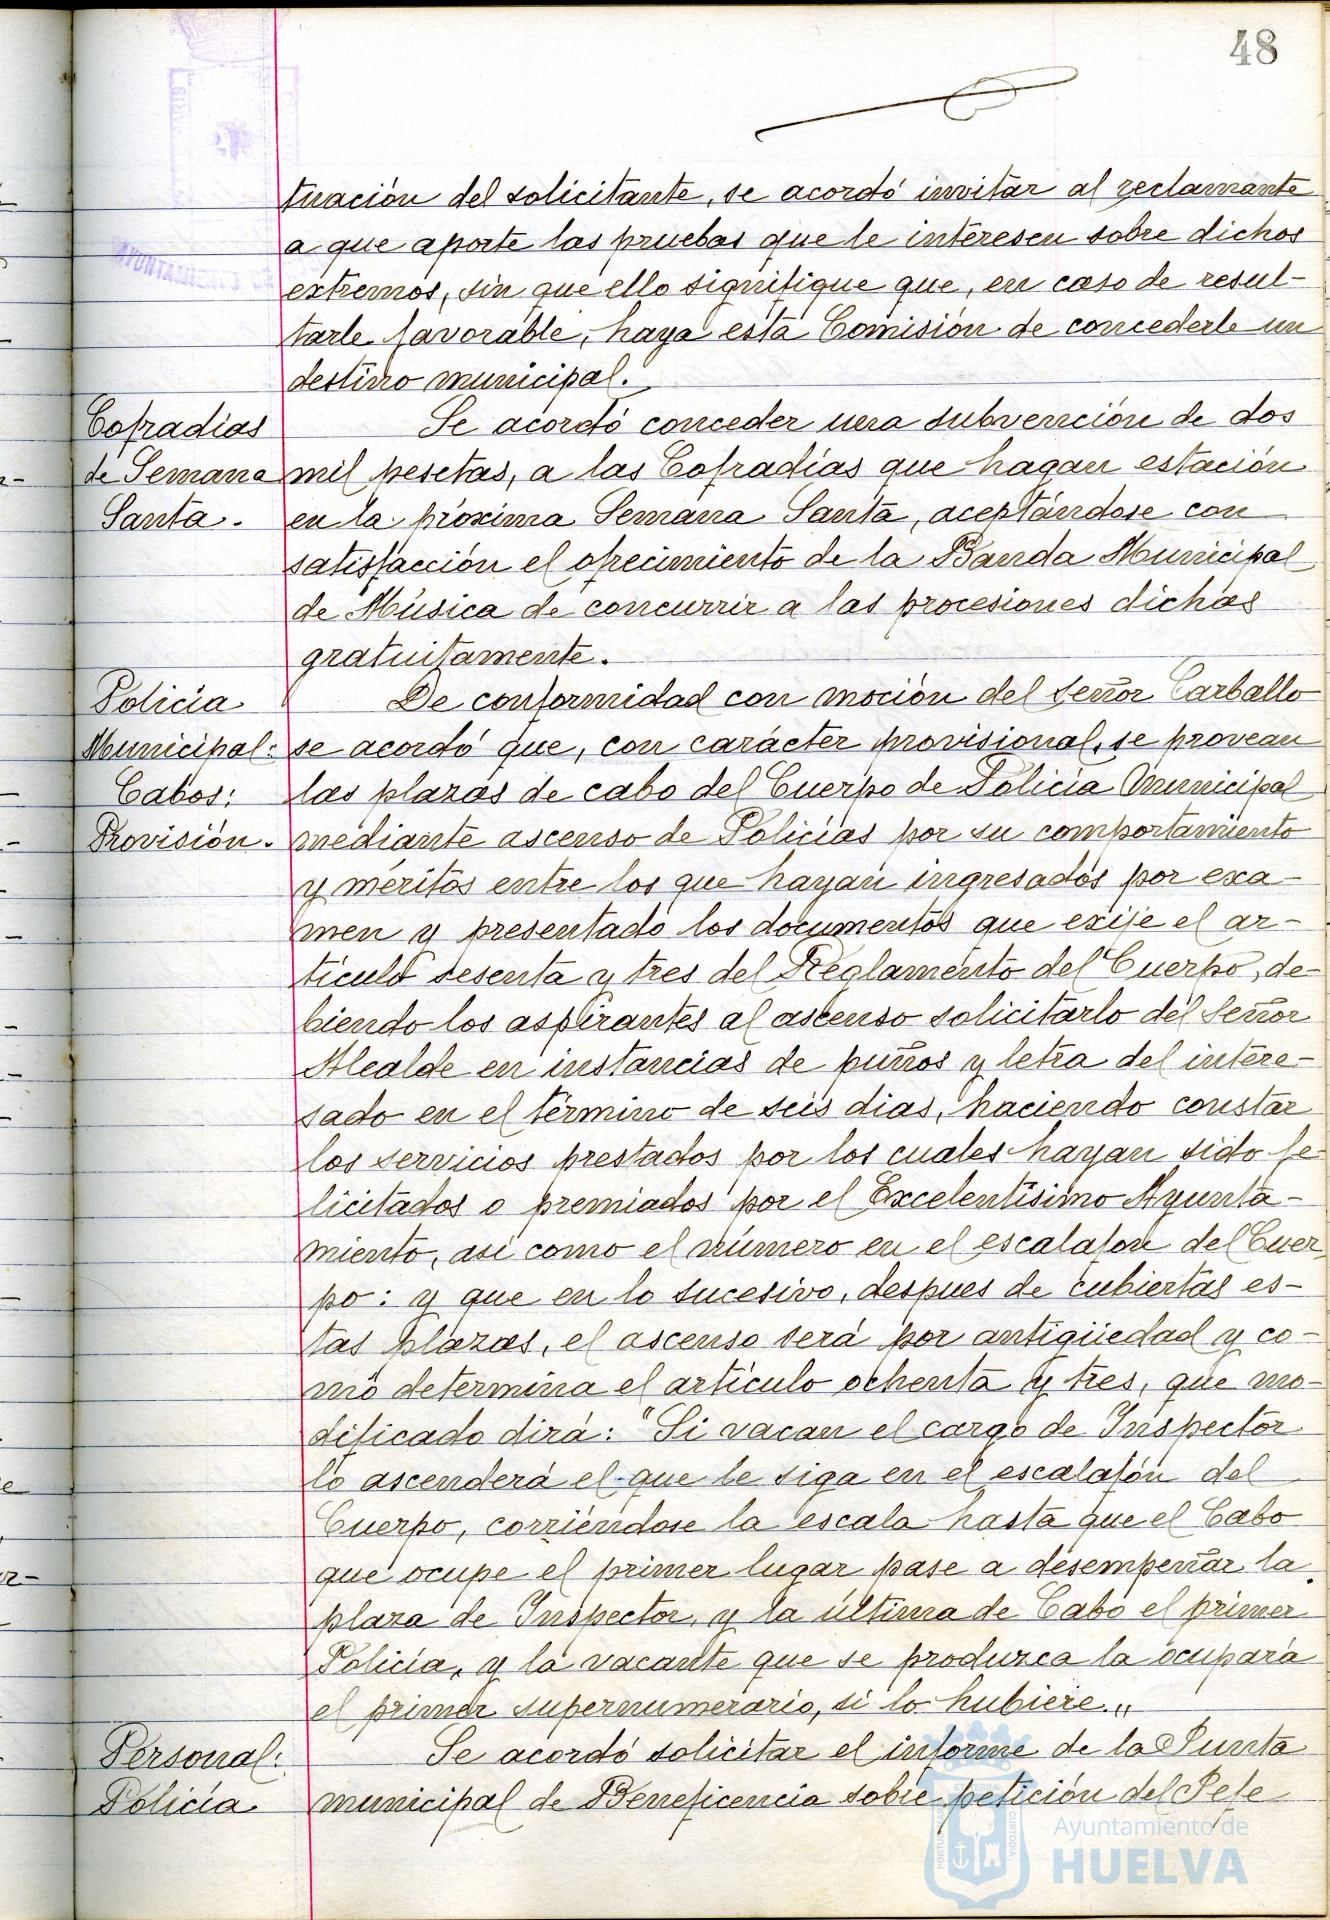 48
tuación del solicitante, se acordó invitar al reclamante
a que aporte las pruebas que le interesen sobre dichos
extremos, sin que ello signifique que, en caso de resul-
tarle favorable, haya esta Comisión de concederle un
destino municipal.
Cofradías
de Semana
Santa.
Se acordó conceder una subvención de dos
mil pesetas, a las Cofradías que hagan estación
en la próxima Semana Santa, aceptándose con
satisfacción el ofrecimiento de la Banda Municipal
de Música de concurrir a las procesiones dichas
gratuitamente.
Policía
Municipal:
Cabos:
Provisión.
De conformidad con moción del señor Carballo
se acordó que, con carácter provisional, se provean
las plazas de cabo del Cuerpo de Policía Municipal
mediante ascenso de Policías por su comportamiento
y méritos entre los que hayan ingresados por exa-
men y presentado los documentos que exije el ar-
tículo sesenta y tres del Reglamento del Cuerpo, de-
biendo los aspirantes al ascenso solicitarlo del Señor
Alcalde en instancias de puños y letra del intere-
sado en el término de seis dias, haciendo constar
los servicios prestados por los cuales hayan sido fe-
licitados o premiados por el Excelentísimo Ayunta-
miento, asi como el número en el escalafon del Cuer-
po: y que en lo sucesivo, despues de cubiertas es-
tas plazas, el ascenso será por antigüedad y co-
mo determina el artículo ochenta y tres, que mo-
dificado dirá: "Si vacan el cargo de Inspector
lo ascenderá el que le siga en el escalafón del
Cuerpo, corriéndose la escala hasta que el Cabo
que ocupe el primer lugar pase a desempeñar la
plaza de Inspector, y la última de Cabo el primer
Policía, y la vacante que se produzca la ocupará
el primer supernumerario, si lo hubiere."
Personal:
Policía
Se acordó solicitar el informe de la Junta
municipal de Beneficencia sobre petición del Jefe
Ayuntamiento de
HUELVA